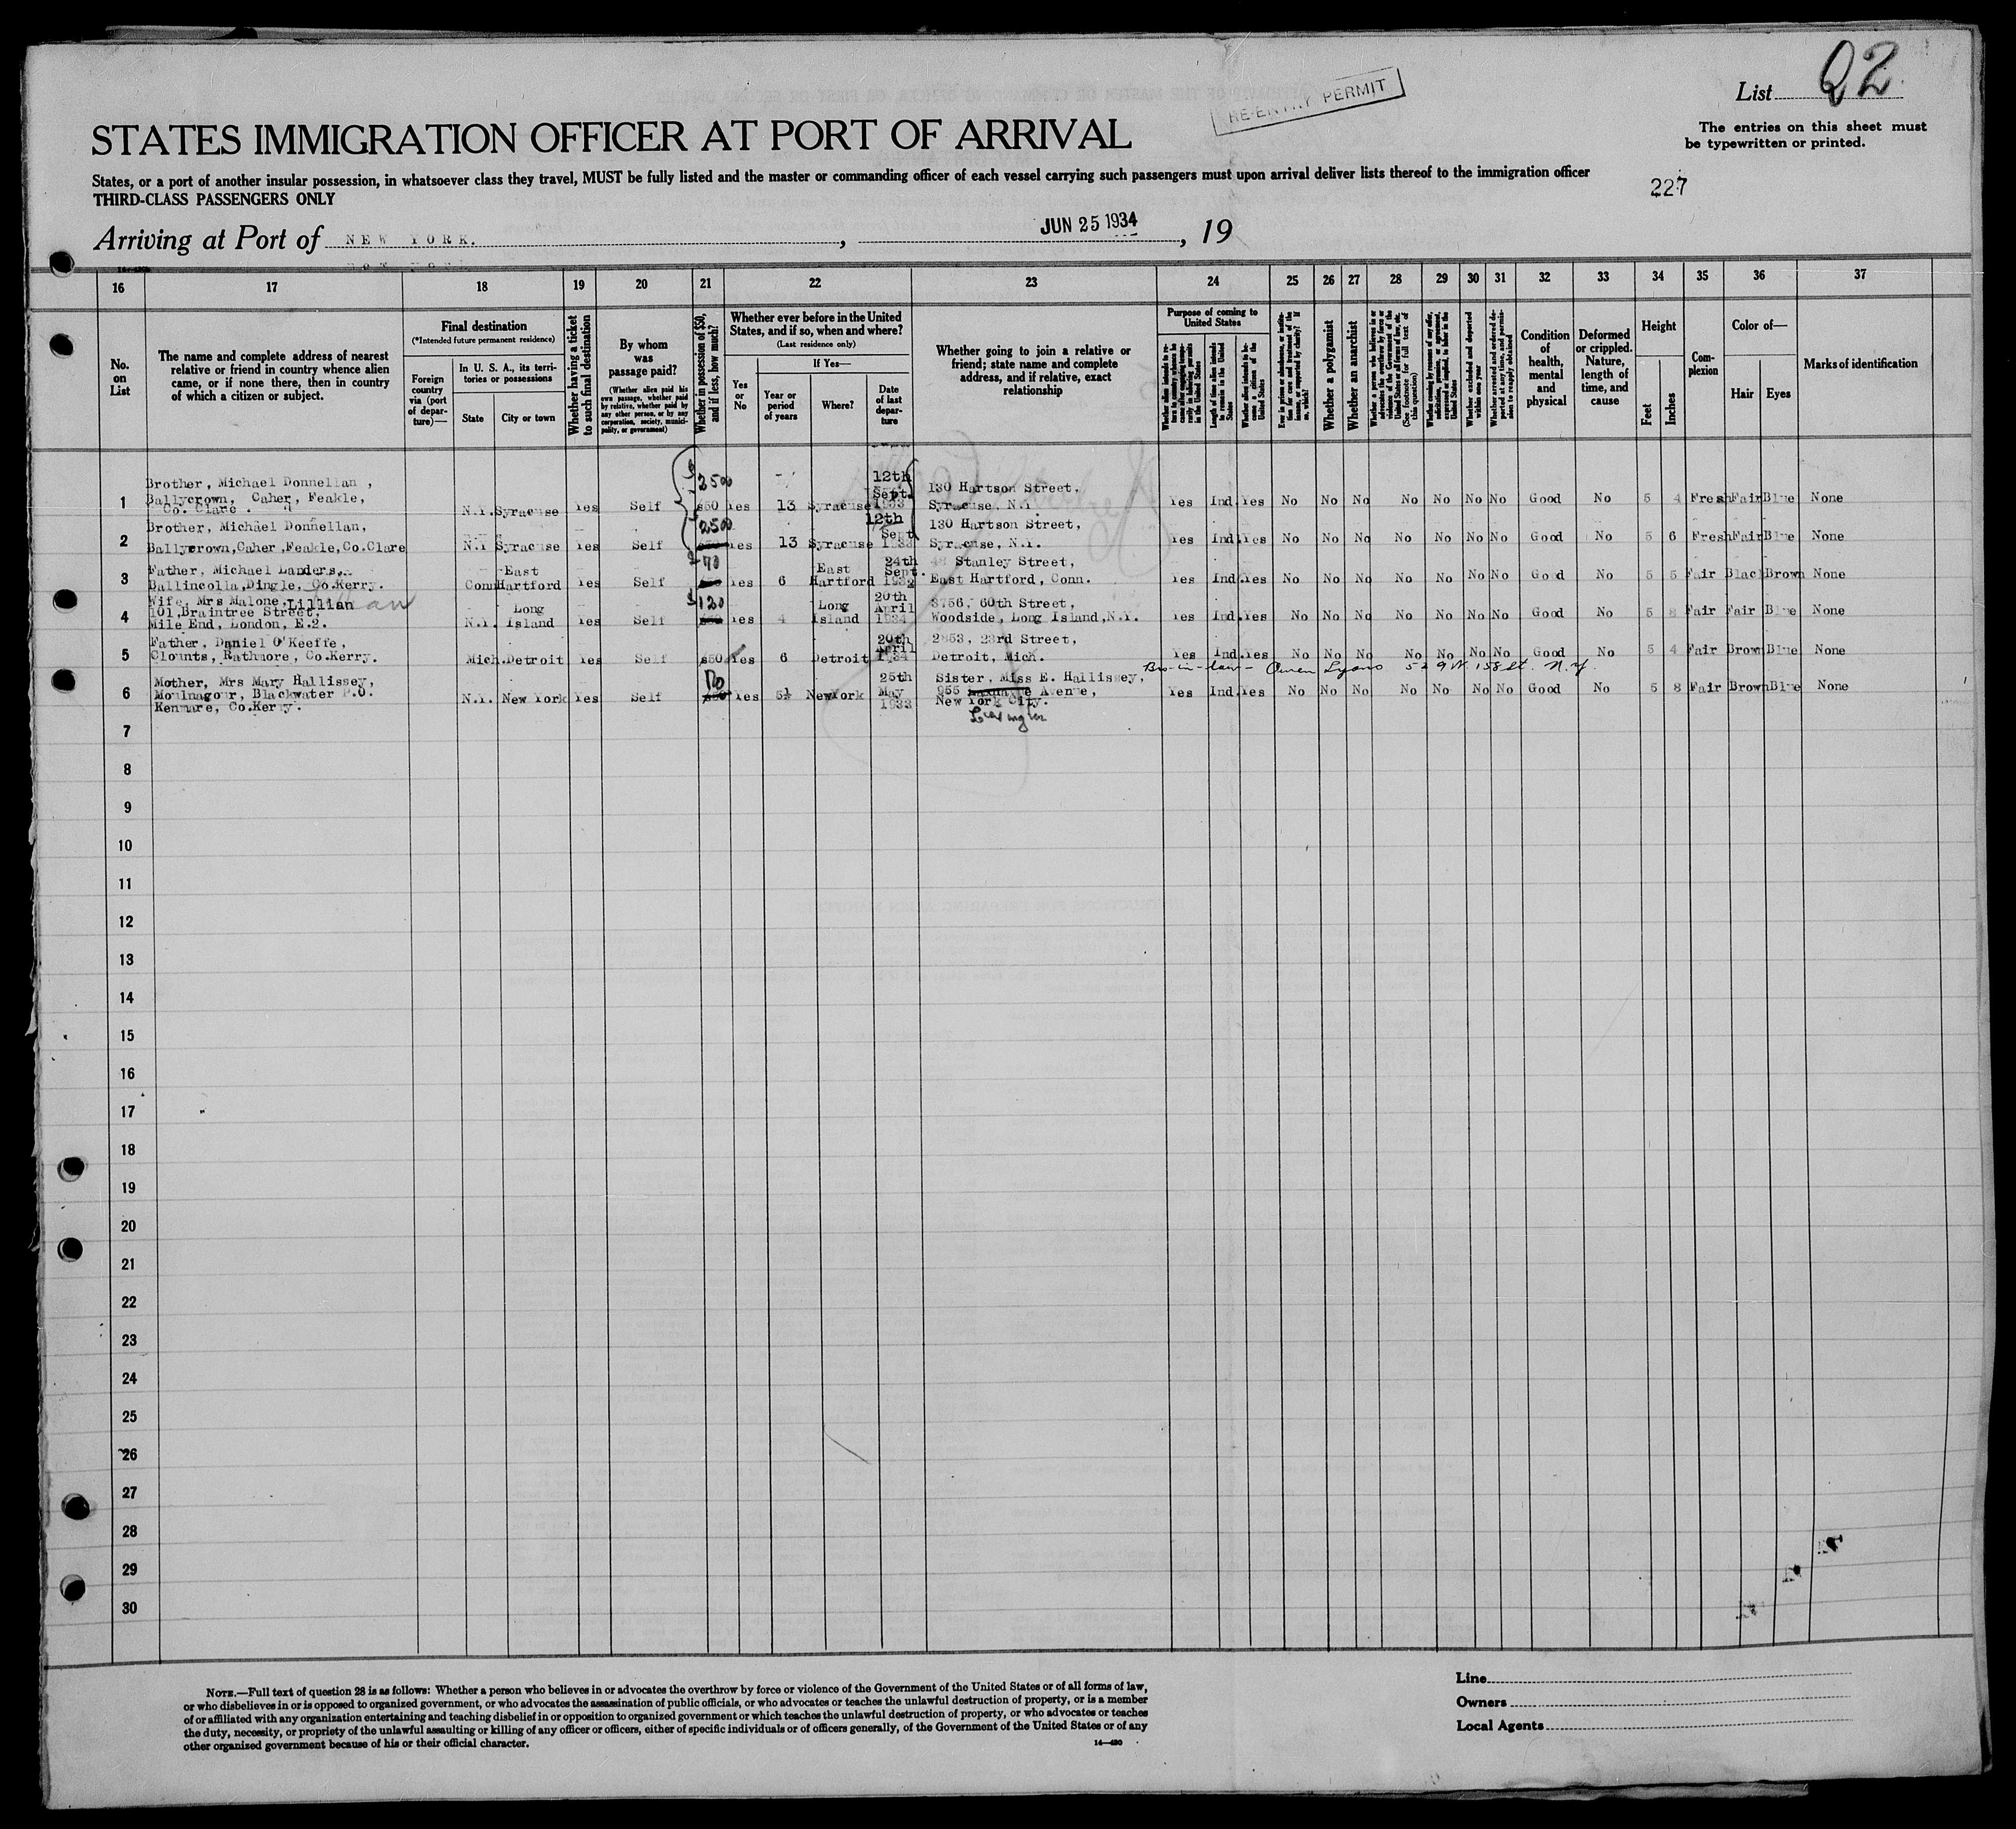 RE-ENTRY PERMIT
List 22
STATES IMMIGRATION OFFICER AT PORT OF ARRIVAL
The entries on this sheet must
be typewritten or printed.
States, or a port of another insular possession, in whatsoever class they travel, MUST be fully listed and the master or commanding officer of each vessel carrying such passengers must upon arrival deliver lists thereof to the immigration officer
THIRD-CLASS PASSENGERS ONLY
227
Arriving at Port of NEW YORK. , JUN 25 1934 , 19
16 17 18 19 20 21 22 23 24 25 26 27 28 29 30 31 32 33 34 35 36 37
No. on List
The name and complete address of nearest relative or friend in country whence alien came, or if none there, then in country of which a citizen or subject.
Final destination
(*Intended future permanent residence)
Foreign country via (port of departure)—
In U. S. A., its territories or possessions
State
City or town
Whether having a ticket to such final destination
By whom was passage paid?
(Whether alien paid his own passage, whether paid by relative, whether paid by any other person, or by any corporation, society, municipality, or government)
Whether in possession of $50, and if less, how much?
Whether ever before in the United States, and if so, when and where?
(Last residence only)
Yes or No
If Yes—
Year or period of years
Where?
Date of last departure
Whether going to join a relative or friend; state name and complete address, and if relative, exact relationship
Purpose of coming to United States
Length of time alien intends to remain in the United States
Whether alien intends to become a citizen of the United States
Whether a polygamist
Whether an anarchist
(See footnote for full text of this question)
Whether excluded and deported within one year
Condition of health, mental and physical
Deformed or crippled. Nature, length of time, and cause
Height
Feet
Inches
Complexion
Color of—
Hair
Eyes
Marks of identification
1 Brother, Michael Donnellan,
Ballycrown, Caher, Feakle,
Co. Clare. N.Y. Syracuse Yes Self $50 250 Yes 13 Syracuse 12th Sept. 1933 130 Hartson Street,
Syracuse, N.Y. Yes Ind. Yes No No No No No No No Good No 5 4 Fresh Fair Blue None
2 Brother, Michael Donnellan,
Ballycrown, Caher, Feakle, Co.Clare N.Y Syracuse Yes Self 250 Yes 13 Syracuse 12th Sept 1933 130 Hartson Street,
Syracuse, N.Y. Yes Ind. Yes No No No No No No No Good No 5 6 Fresh Fair Blue None
3 Father, Michael Landers,
Ballincolla, Dingle, Co.Kerry. Conn East Hartford Yes Self 70 Yes 6 East Hartford 24th Sept. Stanley Street,
East Hartford, Conn. Yes Ind. Yes No No No No No No No Good No 5 5 Fair Black Brown None
4 Wife, Mrs Malone, Lillian
101, Braintree Street,
Mile End, London, E.2. N.Y. Long Island Yes Self $120 Yes 4 Long Island 20th April 1934 3756, 60th Street,
Woodside, Long Island, N.Y. Yes Ind. Yes No No No No No No No Good No 5 8 Fair Fair Blue None
5 Father, Daniel O'Keeffe,
Clounts, Rathmore, Co.Kerry. Mich. Detroit Yes Self $50 Yes 6 Detroit 20th April 1934 2853, 23rd Street,
Detroit, Mich. Yes Ind. Yes No No No No No No No Good No 5 4 Fair Brown Blue None
Bro-in-law - Owen Lyons 529 W. 158 St. N.Y.
6 Mother, Mrs Mary Hallissey,
Moulnagour, Blackwater P.O.
Kenmare, Co.Kerry. N.Y. New York Yes Self Yes 5½ NewYork 25th May 1933 Sister, Miss E. Hallissey,
955 Avenue,
New York City. Yes Ind. Yes No No No No No No No Good No 5 8 Fair Brown Blue None
Lexington
7
8
9
10
11
12
13
14
15
16
17
18
19
20
21
22
23
24
25
26
27
28
29
30
NOTE.—Full text of question 28 is as follows: Whether a person who believes in or advocates the overthrow by force or violence of the Government of the United States or of all forms of law,
or who disbelieves in or is opposed to organized government, or who advocates the assassination of public officials, or who advocates or teaches the unlawful destruction of property, or is a member
of or affiliated with any organization entertaining and teaching disbelief in or opposition to organized government or which teaches the unlawful destruction of property, or who advocates or teaches
the duty, necessity, or propriety of the unlawful assaulting or killing of any officer or officers, either of specific individuals or of officers generally, of the Government of the United States or of any
other organized government because of his or their official character.
14—430
Line
Owners
Local Agents